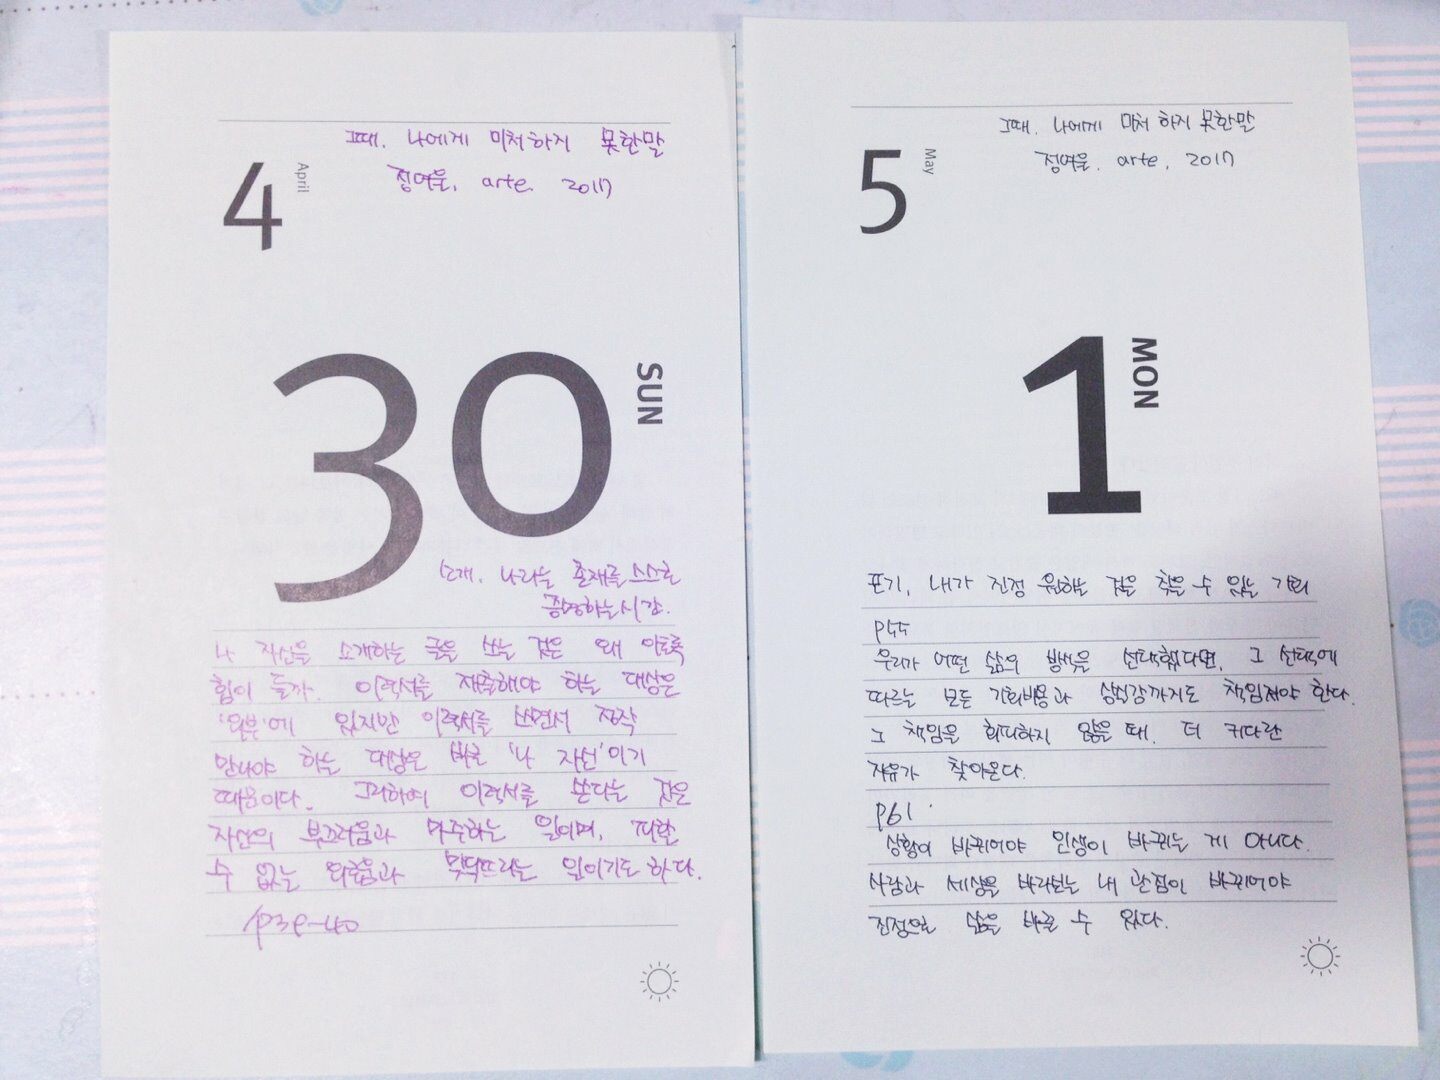 그때, 나에게 미처 하지 못한 말
정여울, arte, 2017
4
April
30
SUN
소개, 나라는 존재를 스스로
증명하는 시간.
나 자신을 소개하는 글을 쓰는 것은 왜 이토록
힘이 들까. 이력서를 제출해야 하는 대상은
'외부'에 있지만 이력서를 쓰면서 정작
만나야 하는 대상은 바로 '나 자신'이기
때문이다. 그리하여 이력서를 쓴다는 것은
자신의 부끄러움과 마주하는 일이며, 피할
수 없는 외로움과 맞닥뜨리는 일이기도 하다.
p39-40
그때, 나에게 미처 하지 못한 말
정여울, arte, 2017
5
May
1
MON
포기, 내가 진정 원하는 것을 찾을 수 있는 기회
p55
우리가 어떤 삶의 방식을 선택했다면, 그 선택에
따르는 모든 기회비용과 상실감까지도 책임져야 한다.
그 책임을 회피하지 않을 때, 더 커다란
자유가 찾아온다.
p61.
상황이 바뀌어야 인생이 바뀌는 게 아니다.
사람과 세상을 바라보는 내 관점이 바뀌어야
진정으로 삶을 바꿀 수 있다.